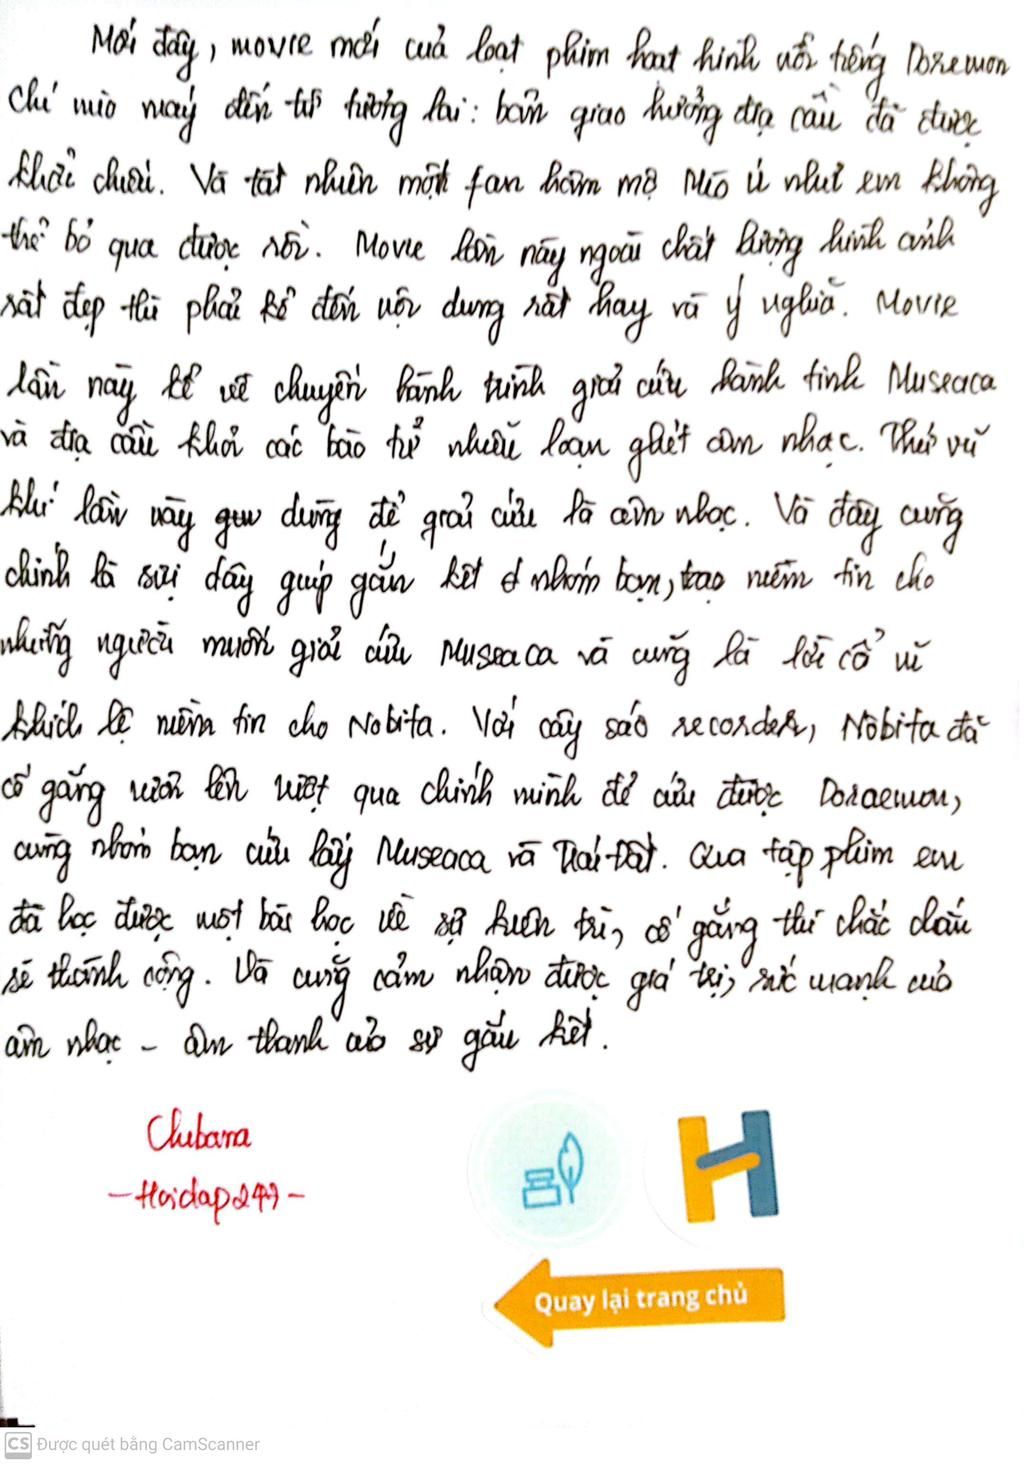 Mới đây, movie mới của loạt phim hoạt hình nổi tiếng Doremon
chú mèo máy đến từ tương lai: bản giao hưởng địa cầu đã được
khởi chiếu. Và tất nhiên một fan hâm mộ Mèo ú như em không
thể bỏ qua được rồi. Movie lần này ngoài chất lượng hình ảnh
rất đẹp thì phải kể đến nội dung rất hay và ý nghĩa. Movie
lần này kể về chuyến hành trình giải cứu hành tinh Museaca
và địa cầu khỏi các bào tử nhiễu loạn ghét âm nhạc. Thứ vũ
khí lần này dùng để giải cứu là âm nhạc. Và đây cũng
chính là sợi dây giúp gắn kết nhóm bạn, tạo niềm tin cho
những người muốn giải cứu Museaca và cũng là lời cổ vũ
khích lệ niềm tin cho Nobita. Với cây sáo recorder, Nobita đã
cố gắng vươn lên vượt qua chính mình để cứu được Doraemon,
cùng nhóm bạn cứu lấy Museaca và Trái Đất. Qua tập phim em
đã học được một bài học về sự kiên trì, cố gắng thì chắc chắn
sẽ thành công. Và cũng cảm nhận được giá trị, sức mạnh của
âm nhạc - âm thanh của sự gắn kết.
Chibana
-Hoidap247-
H
Quay lại trang chủ
CS Được quét bằng CamScanner